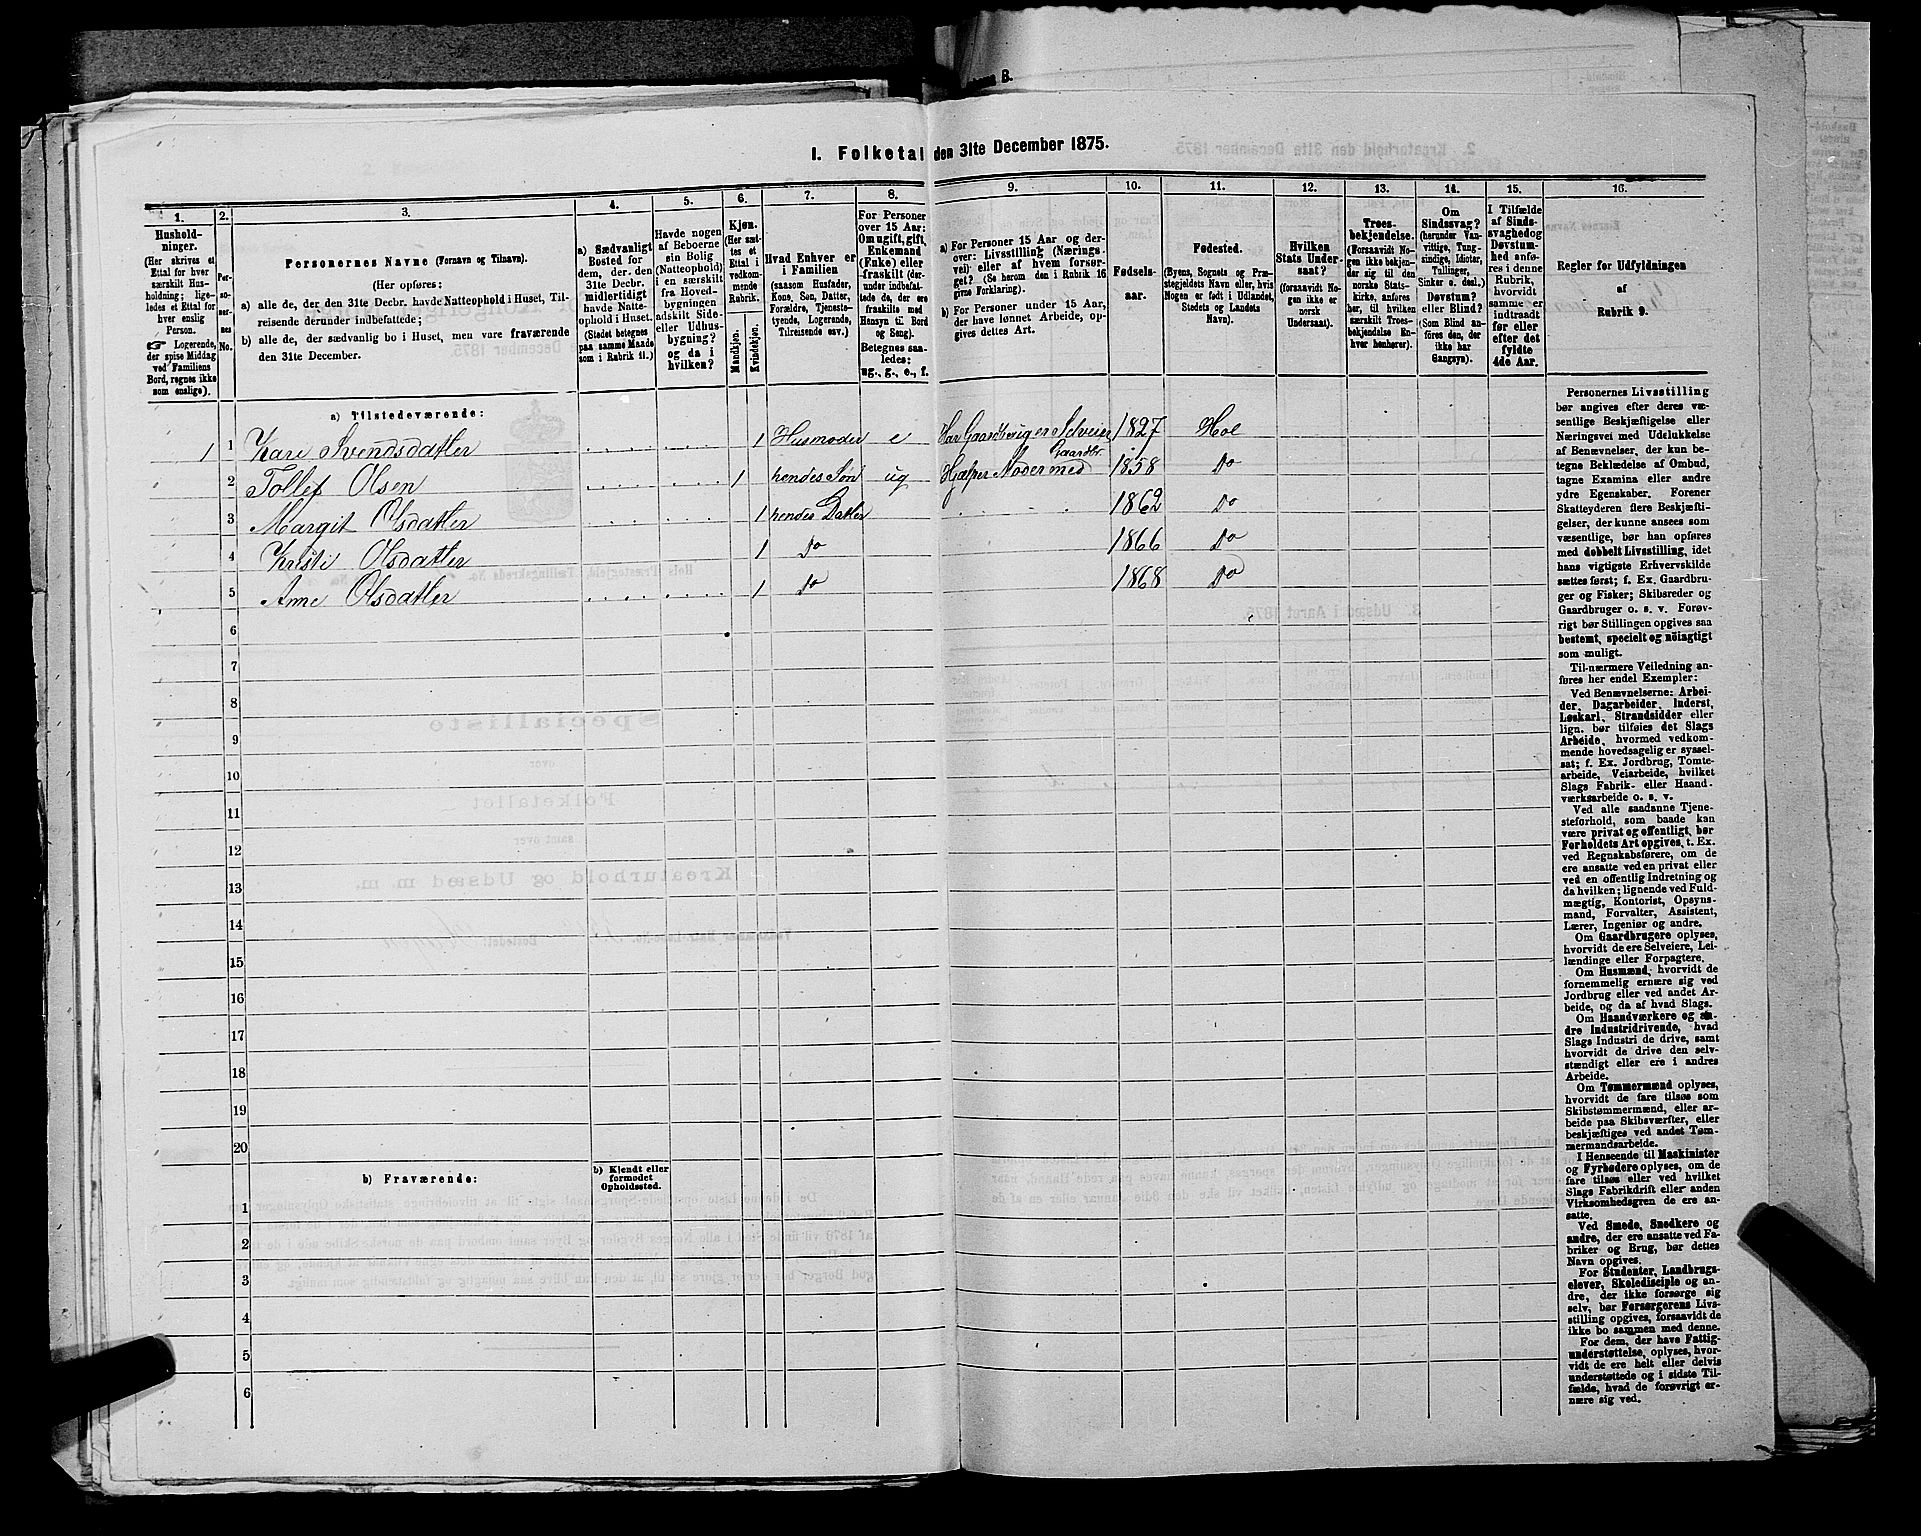 I. Folketal den 31te December 1875.
1.
2.
3.
4.
5.
6.
7.
8.
9.
10.
11.
12.
13.
14.
15.
16.
Hushold-
ninger.
(Her skrives et
Ettal for hver
særskilt Hus-
holdning; lige-
ledes et Ettal for
hver enslig
Person.
☞ Logerende,
der spise Middag
ved Familiens
Bord, regnes ikke
som enslige).
Per-
so-
ner-
nes
No.
Personernes Navne (Fornavn og Tilnavn).
(Her opføres:
a) alle de, der den 31te Decbr. havde Natteophold i Huset, Til-
reisende derunder indbefattede;
b) alle de, der sædvanlig bo i Huset, men vare fraværende
den 31te December.
a) Sædvanligt
Bosted for
dem, der den
31te Decbr.
midlertidigt
havde Natte-
ophold i Huset.
(Stedet betegnes
paa samme Maade
som i Rubrik 11.)
Havde nogen
af Beboerne
sin Bolig
(Natteophold)
i en særskilt
fra Hoved-
bygningen
adskilt Side-
eller Udhus-
bygning?
og da i
hvilken?
Kjøn.
(Her sæt-
tes et
Ettal i
vedkom-
mende
Rubrik.
Mandkjøn.
Kvindekjøn.
Hvad Enhver er
i Familien
(saasom Husfader,
Kone, Søn, Datter,
Forældre, Tjeneste-
tyende, Logerende,
Tilreisende osv.)
For Personer
over 15 Aar:
Om ugift, gift,
Enkemand
(Enke) eller
fraskilt (der-
under indbefat-
tede de, der ere
fraskilte med
Hensyn til Bord
og Seng).
Betegnes saa-
ledes:
ug., g., e., f.
a) For Personer 15 Aar og der-
over: Livsstilling (Nærings-
vei) eller af hvem forsør-
get? (Se herom den i Rubrik 16
givne Forklaring).
b) For Personer under 15 Aar,
der have lønnet Arbeide, op-
gives dettes Art.
Fødsels-
aar.
Fødested.
(Byens, Sognets og Præ-
stegjeldets Navn eller, hvis
Nogen er født i Udlandet,
Stedets og Landets
Navn).
Hvilken
Stats Under-
saat?
(foraavidt No-
gen ikke er
norsk
Undersaat).
Troes-
bekjendelse.
(Forsaavidt No-
gen ikke bekjen-
der sig til den
norske Stats-
kirke, anføres
her, til hvilken
særskilt Troes-
bekjendelse En-
hver henhører).
Om
Sindssvag?
(herunder Van-
vittige, Tung-
sindige, Idioter,
Tullinger,
Sinker o. desl.)
Døvstum?
eller Blind?
(Som Blind an-
føres den, der
ikke har
Gangsyn).
I Tilfælde
af Sinds-
svaghed og
Døvstum-
hed anfø-
res i denne
Rubrik,
hvorvidt
samme er
indtraadt
før eller
efter det
fyldte
4de Aar.
Regler for Udfyldningen
af
Rubrik 9.
a) Tilstedeværende:
1 1 Kari Svendsdatter 1 Husmoder e Har Gaardbrug er Selveier 1827 Hol
2 Tollef Olsen 1 hendes Søn ug Hjælper Moder med Gaardbr. 1858 Do
3 Margit Olsdatter 1 hendes Datter 1862 Do
4 Kristi Olsdatter 1 Do 1866 Do
5 Anne Olsdatter 1 Do 1868 Do
6
7
8
9
10
11
12
13
14
15
16
17
18
19
20
b) Fraværende:
b) Kjendt eller
formodet
Opholdssted.
1
2
3
4
5
6
Personernes Livsstilling
bør angives efter deres væ-
sentlige Beskjæftigelse eller
Næringsvei med Udelukkelse
af Benævnelser, der kun be-
tegne Beklædelse af Ombud,
tagne Examina eller andre
ydre Egenskaber. Forener
Skatteyderen flere Beskjæfti-
gelser, der kunne ansees som
væsentlige, bør han opføres
med dobbelt Livsstilling, idet
hans vigtigste Erhvervskilde
sættes først; f. Ex. Gaardbru-
ger og Fisker; Skibsreder og
Gaardbruger o. s. v. Forøv-
rigt bør Stillingen opgives saa
bestemt, specielt og nöiagtigt
som muligt.
Til nærmere Veiledning an-
føres her endel Exempler:
Ved Benævnelserne: Arbei-
der, Dagarbeider, Inderst,
Løskarl, Strandsidder eller
lign. bør tilføies det Slags
Arbeide, hvormed vedkom-
mende hovedsagelig er syssel-
sat; f. Ex. Jordbrug, Tomte-
arbeide, Veiarbeide, hvilket
Slags Fabrik- eller Haand-
værksarbeide o. s. v.
Ved alle saadanne Tjene-
steforhold, som baade kan
være privat og offentligt, bør
Forholdets Art opgives, t. Ex.
ved Regnskabsførere, om de
ere ansatte ved en privat eller
ved en offentlig Indretning og
da hvilken; lignende ved Fuld-
mægtig, Kontorist, Opsyns-
mand, Forvalter, Assistent,
Lærer, Ingeniør og andre.
Om Gaardbrugere oplyses,
hvorvidt de ere Selveiere, Lei-
lændinge eller Forpagtere.
Om Husmænd, hvorvidt de
fornemmelig ernære sig ved
Jordbrug eller ved andet Ar-
beide, og da af hvad Slags.
Om Haandværkere og an-
dre Industridrivende, hvad
Slags Industri de drive, samt
hvorvidt de drive den selv-
stændigt eller ere i andres
Arbeide.
Om Tømmermænd oplyses,
hvorvidt de fare tilsøs som
Skibstømmermænd, eller ar-
beide paa Skibsværfter, eller
beskjæftiges ved andet Tøm-
mermandsarbeide.
I Henseende til Maskinister
og Fyrbødere oplyses, om de
fare tilsøs eller ved hvilket
Slags Fabrikdrift eller anden
Virksomhedsgren de ere an-
satte.
Ved Smede, Snedkere og
andre, der ere ansatte ved Fa-
briker og Brug, bør dettes
Navn opgives.
For Studenter, Landbrugs-
elever, Skoledisciple og an-
dre, der ikke forsørge sig
selv, bør Forsørgerens Livs-
stilling opgives, forsaavidt de
ikke bo sammen med denne.
For dem, der have Fattig-
understøttelse, oplyses, hvor-
vidt de ere helt eller delvis
understøttede og i sidste Til-
fælde, hvad de forøvrigt er-
nære sig ved.